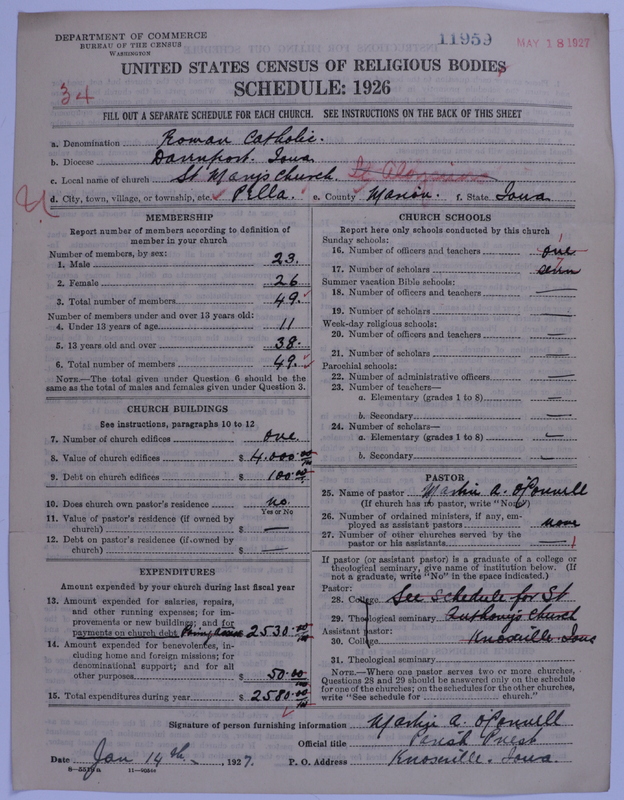 DEPARTMENT OF COMMERCE
BUREAU OF THE CENSUS
WASHINGTON
11959
MAY 18 1927
UNITED STATES CENSUS OF RELIGIOUS BODIES
SCHEDULE: 1926
34
FILL OUT A SEPARATE SCHEDULE FOR EACH CHURCH. SEE INSTRUCTIONS ON THE BACK OF THIS SHEET
a. Denomination Roman Catholic.
b. Diocese Davenport. Iowa
c. Local name of church St Mary's Church.
d. City, town, village, or township, etc. Pella. e. County Marion. f. State Iowa
MEMBERSHIP
Report number of members according to definition of member in your church
Number of members, by sex:
1. Male 23.
2. Female 26
3. Total number of members 49.
Number of members under and over 13 years old:
4. Under 13 years of age 11
5. 13 years old and over 38.
6. Total number of members 49.
NOTE.—The total given under Question 6 should be
the same as the total of males and females given under Question 3.
CHURCH BUILDINGS
See instructions, paragraphs 10 to 12
7. Number of church edifices one.
8. Value of church edifices $ 4.000.00/100
9. Debt on church edifices $ 100.00/100
10. Does church own pastor's residence no.
Yes or No
11. Value of pastor's residence (if owned by
church) $ —
12. Debt on pastor's residence (if owned by
church) $ —
EXPENDITURES
Amount expended by your church during last fiscal year
13. Amount expended for salaries, repairs,
and other running expenses; for im-
provements or new buildings; and for
payments on church debt 2530.00/100
14. Amount expended for benevolences, in-
cluding home and foreign missions; for
denominational support; and for all
other purposes $ 50.00/100
15. Total expenditures during year $ 2580.00/100
CHURCH SCHOOLS
Report here only schools conducted by this church
Sunday schools:
16. Number of officers and teachers one 1
17. Number of scholars seven 7
Summer vacation Bible schools:
18. Number of officers and teachers —
19. Number of scholars —
Week-day religious schools:
20. Number of officers and teachers —
21. Number of scholars —
Parochial schools:
22. Number of administrative officers —
23. Number of teachers—
a. Elementary (grades 1 to 8) —
b. Secondary —
24. Number of scholars—
a. Elementary (grades 1 to 8) —
b. Secondary —
PASTOR
25. Name of pastor Martin A. O'Connell
(If church has no pastor, write "None")
26. Number of ordained ministers, if any, em-
ployed as assistant pastors none
27. Number of other churches served by the
pastor or his assistants — 1
If pastor (or assistant pastor) is a graduate of a college or
theological seminary, give name of institution below. (If
not a graduate, write "No" in the space indicated.)
Pastor:
28. College See Schedule for St
29. Theological seminary Anthony's Church
Assistant pastor:
30. College Knoxville - Iowa
31. Theological seminary
NOTE.—Where one pastor serves two or more churches,
Questions 28 and 29 should be answered only on the schedule
for one of the churches; on the schedules for the other churches,
write "See schedule for church."
Signature of person furnishing information Martin A. O'Connell
Official title Parish Priest
Date Jan 14th, 1927. P. O. Address Knoxville. Iowa.
8—5519a 11—9044